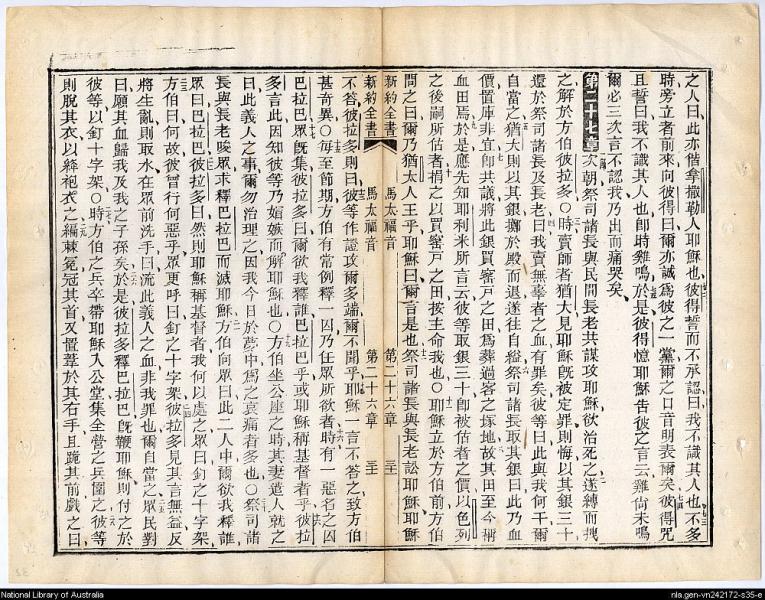 之人曰此亦偕拿撒勒人耶穌也彼得誓而不承認曰我不識其人也不多
時旁立者前來向彼得曰爾亦誠爲彼之一黨爾之口音明表爾矣彼得咒
且誓曰我不識其人也卽時雞鳴於是彼得憶耶穌吿彼之言云雞尙未鳴
爾必三次言不認我乃出而痛哭矣
第二十七章次朝祭司諸長與民間長老共謀攻耶穌欲治死之遂縛而拽
之解於方伯彼拉多〇時賣師者猶大見耶穌旣被定罪則悔以其銀三十
還於祭司諸長及長老曰我賣無辜者之血有罪矣彼等曰此與我何干爾
自當之猶大則以其銀擲於殿而退遂往自縊祭司諸長取其銀曰此乃血
價置庫非宜卽共議將此銀買窰戸之田爲葬過客之塚地故其田至今稱
血田焉於是應先知耶利米所言云彼等取銀三十卽被估者之價以色列
之後嗣所估者捐之以買窰戸之田按主命我也〇耶穌立於方伯前方伯
問之曰爾乃猶太人王乎耶穌曰爾言是也祭司諸長與長老訟耶穌耶穌
新約全書 馬太福音 第二十六章
新約全書 馬太福音 第二十六章
不答彼拉多則曰彼等作證攻爾多端爾不聞乎耶穌一言不答之致方伯
甚奇異〇每至節期方伯有常例釋一囚乃任眾所欲者時有一惡名之囚
巴拉巴眾旣集彼拉多曰爾欲我釋誰巴拉巴乎或耶穌稱基督者乎彼拉
多言此因知彼等乃媢嫉而解耶穌也〇方伯坐公座之時其妻遣人就之
曰此義人之事爾勿治理之因我今日於夢中爲之哀痛者多也〇祭司諸
長與長老唆眾求釋巴拉巴而滅耶穌方伯向眾曰此二人中爾欲我釋誰
眾曰巴拉巴彼拉多曰然則耶穌稱基督者我何以處之眾曰釘之十字架
方伯曰何故彼曾行何惡乎眾更呼曰釘之十字架彼拉多見其言無益反
將生亂則取水在眾前洗手曰流此義人之血非我罪也爾自當之眾民對
曰願其血歸我及我之子孫矣於是彼拉多釋巴拉巴旣鞭耶穌則付之於
彼等以釘十字架〇時方伯之兵卒帶耶穌入公堂集全營之兵圍之彼等
則脫其衣以絳袍衣之編棘冕冠其首又置葦於其右手且跪其前戲之曰
National Library of Australia
nla.gen-vn242172-s35-e